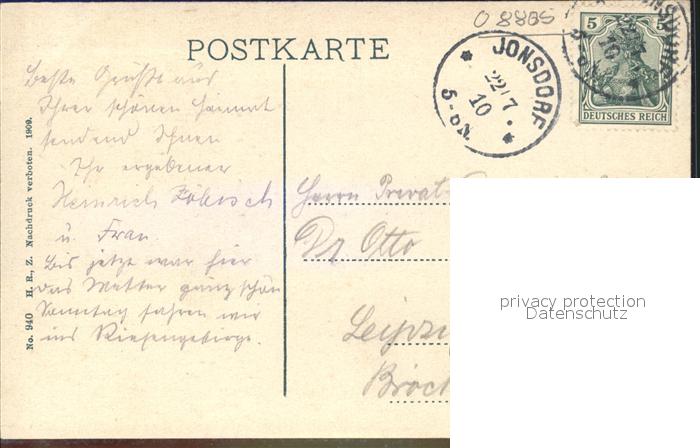 O 8805
POSTKARTE
JONSDORF
22/7
10
5-6N.
5
DEUTSCHES REICH
Beste Grüße aus
Ihrer schönen Heimat
sendend Ihnen
Ihr ergebener
Heinrich
u. Frau.
Bis jetzt war hier
das Wetter ganz schön
Sonntag fahren wir
ins Riesengebirge.
Herrn Privat-
Dr. Otto
Leipzig
Bröck
No. 940 H. R., Z. Nachdruck verboten. 1909.
privacy protection
Datenschutz